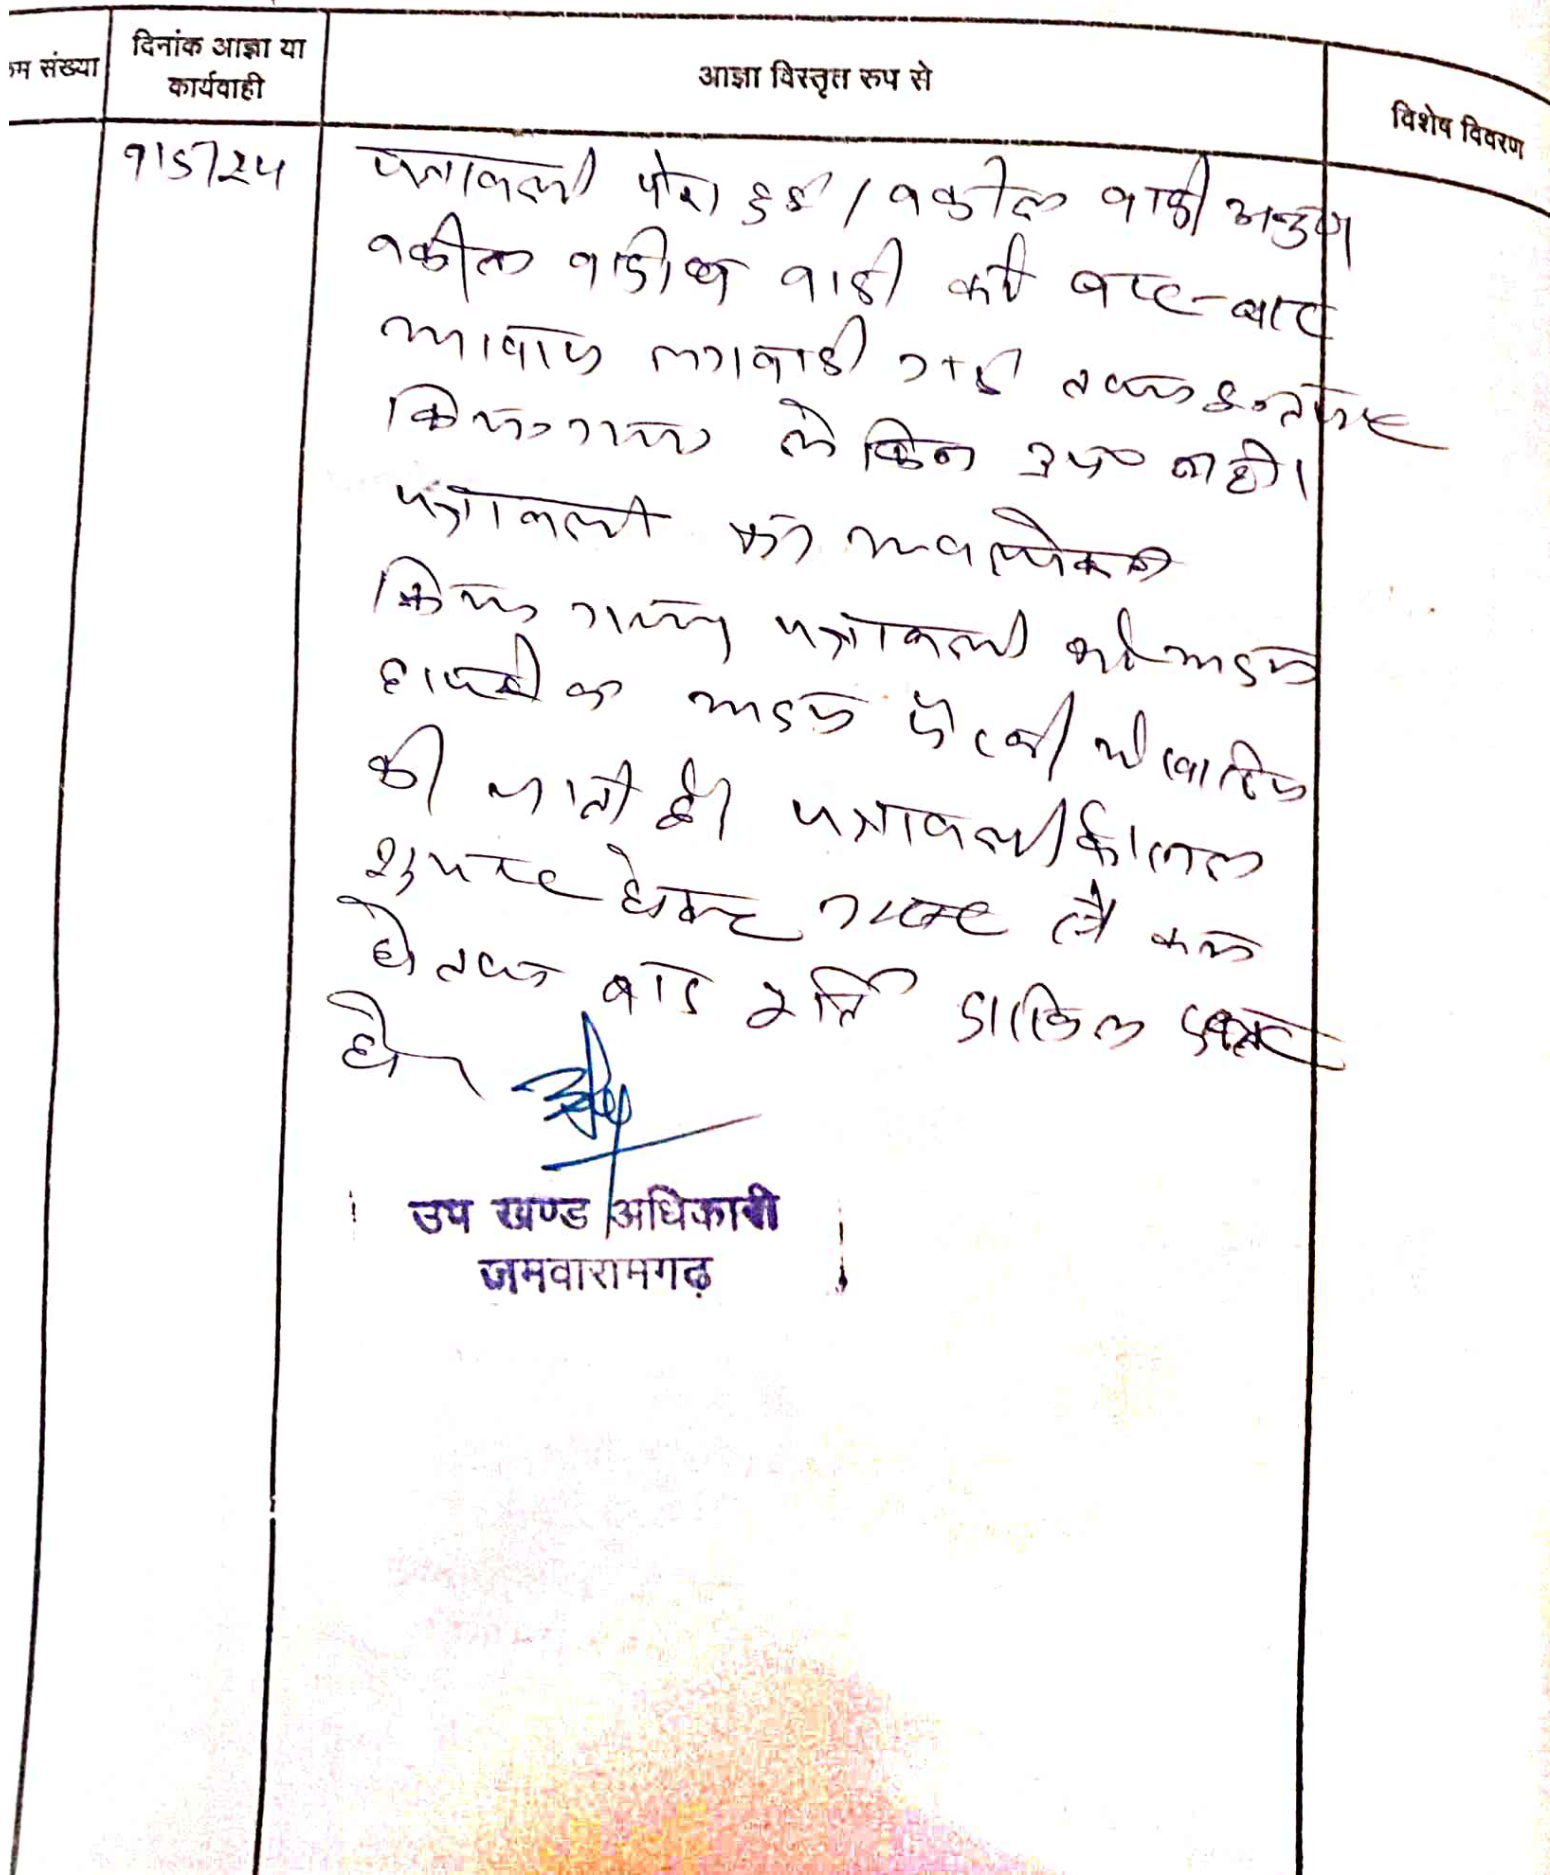 म संख्या
दिनांक आज्ञा या
कार्यवाही
आज्ञा विस्तृत रुप से
विशेष विवरण
पत्रावली पेश हुई। वकील वादी अनुप०
वकील वादी व वादी को बार-बार
आवाज लगवाई गई तथा इन्तजार
किया गया लेकिन उप० नही।
पत्रावली का अवलोकन
किया गया पत्रावली को अदम
हाजरी व अदम पैरवी में खारिज
की जाती है। पत्रावली फैसल
शुमार होकर नम्बर से कम
हो तथा बाद पूर्ति दाखिल दफ्तर
हो
उप खण्ड अधिकारी
जमवारामगढ़